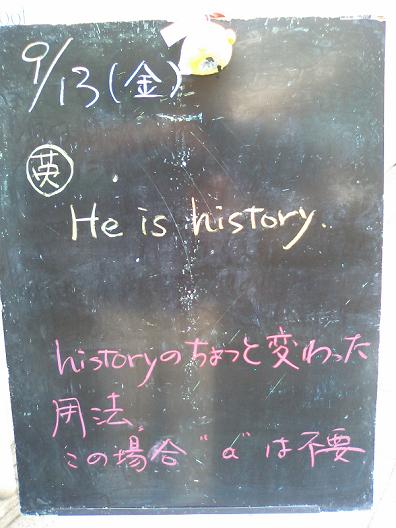 9/13(金)
英
He is history.
historyのちょっと変わった
用法、
この場合"a"は不要